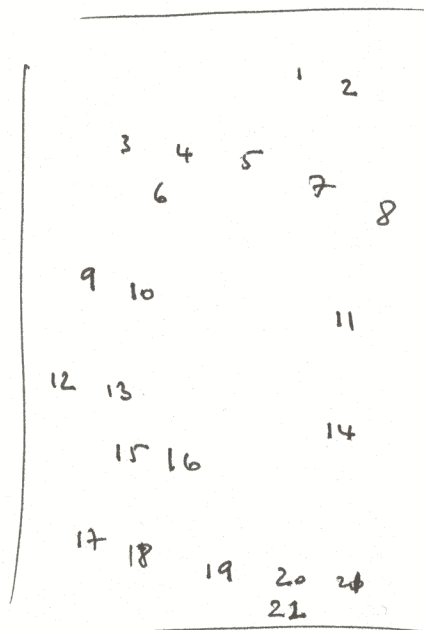 1 2
3 4 5
6 7 8
9 10
11
12 13
14
15 16
17 18
19 20
21